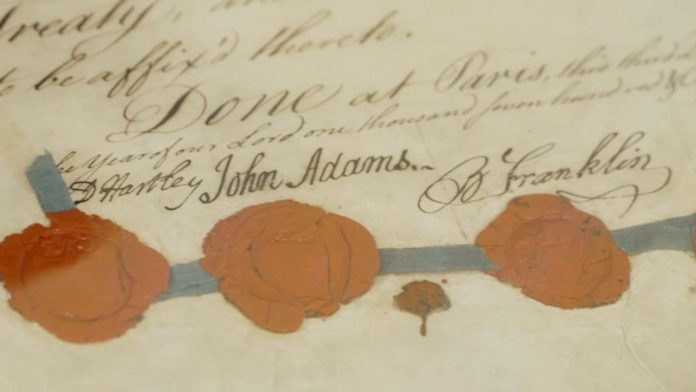 Treaty, 
to be affix'd thereto.
Done at Paris, this third
the Year of our Lord one thousand seven hundred &
D Hartley John Adams. B Franklin